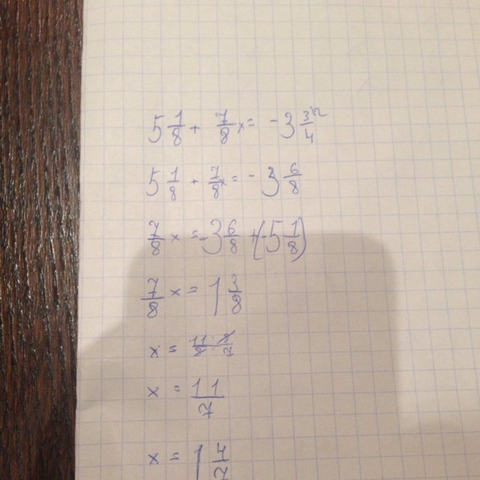 5 1/8 + 7/8 x = -3 3/4 ²
5 1/8 + 7/8 x = -3 6/8
7/8 x = -3 6/8 + (-5 1/8)
7/8 x = 1 3/8
x = 11·8/8·7
x = 11/7
x = 1 4/7